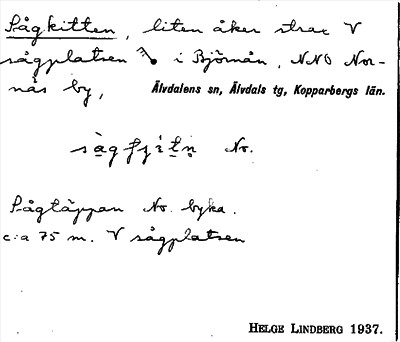 Sågkitten, liten åker strax V
sågplatsen i Björnån, NNO Nor-
nås by, Älvdalens sn, Älvdals tg, Kopparbergs län.
Nr.
Sågtäppan Nr. byka.
c:a 75 m. V sågplatsen
HELGE LINDBERG 1937.